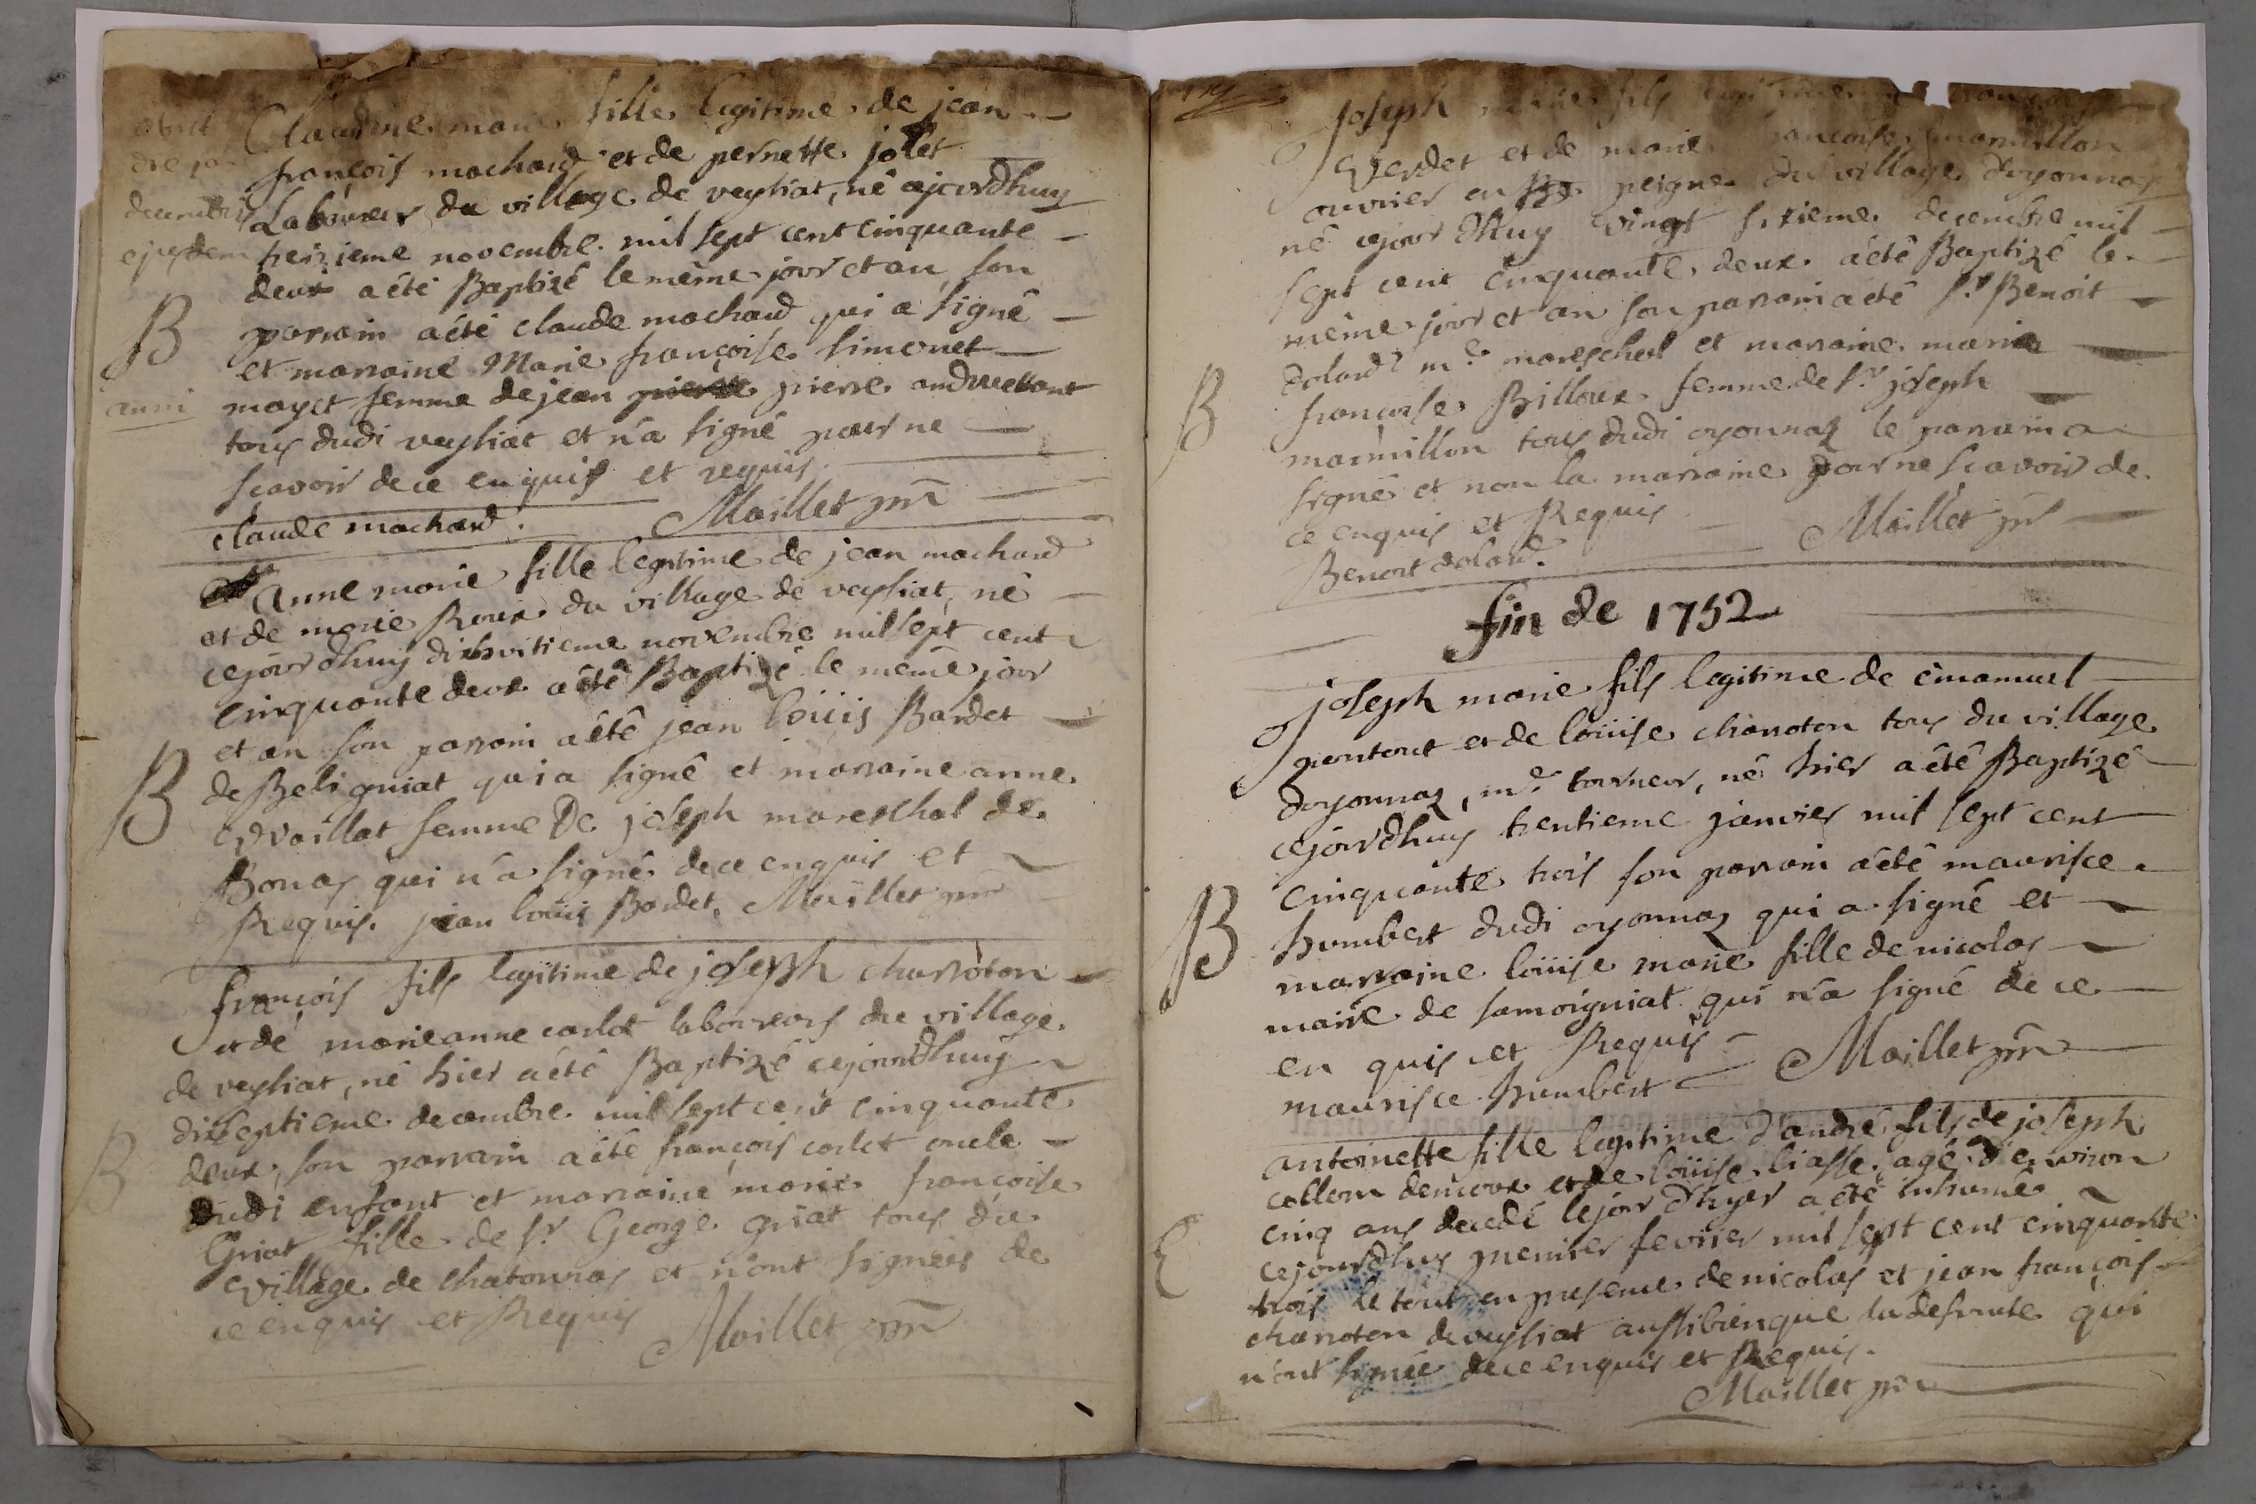 obiit
die 
decembris
ejusdem
anni
Claudine marie fille legitime de jean
françois machard et de pernette jolet
Laboureur du village de veyziat, né cejourdhuy
treizieme novembre mil sept cent cinquante
deux a été Baptizé le même jour et an son
parrain a été claude machard qui a signé
B
et marraine Marie françoise simonet
mayet femme de jean pierre pierre andruettant
tous dudi veyziat et n'a signé pour ne
scavoir de ce enquis et requis.
claude machard. Maillet
anne marie fille legitime de jean machard
et de marie Roux du village de veyziat, né
cejourdhuy dixhuitieme novembre mil sept cent
cinquante deux a été Baptizé le même jour
et an son parrain a été jean loüis Bardet
B
de Beligniat qui a signé et marraine anne
vaillat femme De joseph mareschal de
Bonas qui n'a signé de ce enquis et
Requis. jean loüis Bardet, Maillet
françois fils legitime de joseph charroton
et de marieanne carlet laboureurs du village
de veyziat, né hier a été Baptizé cejourdhuy
dixseptieme decembre mil sept cent cinquante
B
deux, son parrain a été françois carlet oncle
dudi enfant et marraine marie françoise
Griat fille de sr. George griat tous du
village de chatonnas et n'ont signées de
ce enquis et Requis Maillet
Joseph marie fils legitime
verdet et de marie françoise marmillon
ouvrier en peigne du village d'oyonnaz
né cejour dhuy vingt sixieme decembre mil
sept cent cinquante deux a été Baptizé le
même jour et an son parrain a été sr. Benoit
dolard me. mareschal et marraine marie
B
françoise Billoux femme de sr. joseph
marmillon tous dudi oyonnaz le parrain a
signé et non la marraine pour ne scavoir de
ce enquis et Requis Maillet
Benoit dolard.
fin de 1752
joseph marie fils legitime de emanuel
pontout et de loüise charroton tous du village
doyonnaz, me. tourneur, né hier a été Baptizé
cejourdhuy trentieme janvier mil sept cent
cinquante trois son parrain a été maurisce
B
humbert dudi oyonnaz qui a signé et
marraine loüise marie fille de nicolas
maire de samoigniat qui n'a signé de ce
en quis et Requis Maillet
maurisce humbert
antoinette fille legitime d'andré fils de joseph
collom et de loüise liasse, agé d'environ
cinq ans decedé lejour d'hyer a été inhumée
E
cejourdhuy premier fevrier mil sept cent cinquante
trois le tout en presence de nicolas et jean françois
charroton de veyziat aussibienque la defunte qui
n'ont signée de ce enquis et Requis.
Maillet